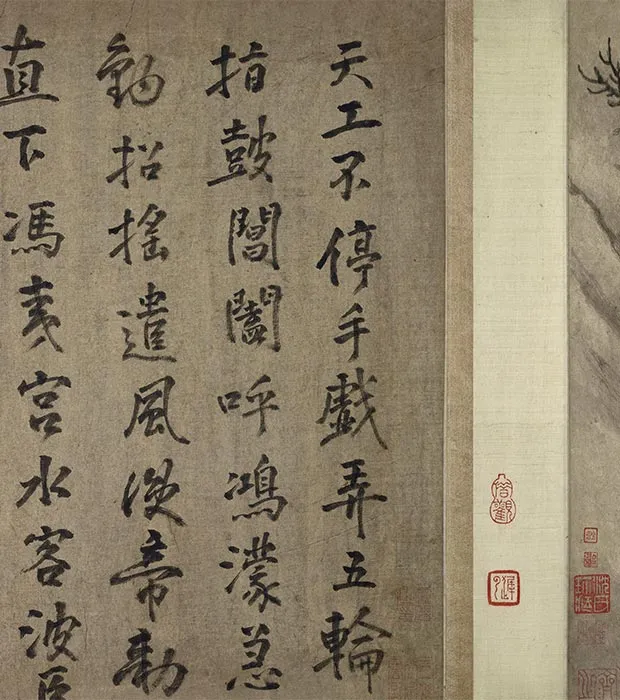 天工不停手戲弄五輪
指鼓闔闢呼鴻濛忽
鈎招搖遣風從帝勅
直下馮夷宮水客波臣